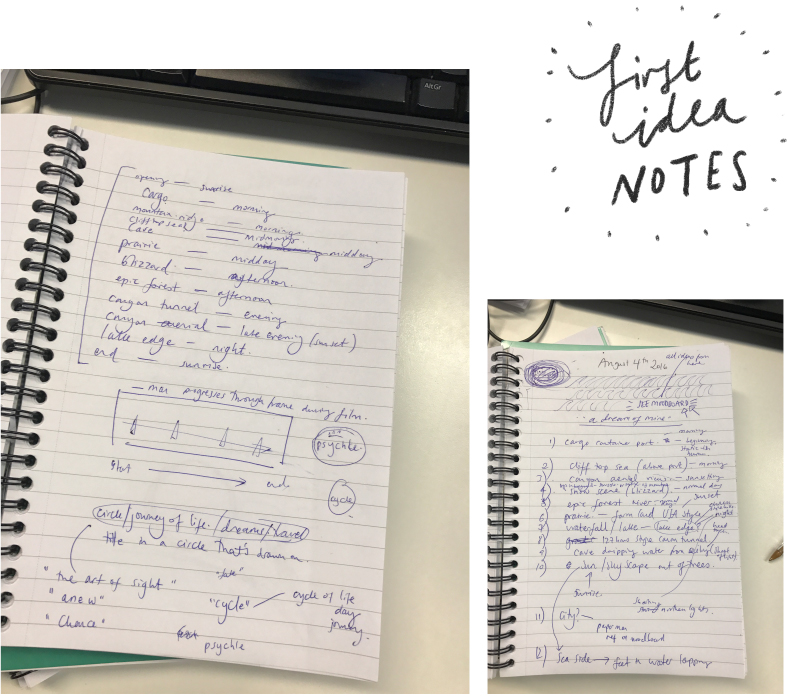 first
idea
NOTES
AltGr
opening — sunrise
Cargo — morning
mountain ridge — morning
Cliff top sea — midmorning
Cave — midday
prairie — midday
blizzard — afternoon
epic forest — afternoon
canyon tunnel — evening
canyon aerial — late evening (sunset)
lake edge — night.
end — sunrise.
— man progresses through frame during film.
psychle
start → end
cycle
circle/journey of life/dreams/travel
title in a circle that's drawn on.
"the art of sight"
"anew"
"chance"
"fate"
"cycle" — cycle of life
day
journey.
psychle
August 4th 2016
all ideas from here
SEE MOODBOARD
a dream of mine.
1) cargo container port — beginning, morning
2) Cliff top sea (above port) — morning
3) Canyon aerial view — sunsetting
4) snow scene (blizzard) — normal day
5) epic forest river — sunset
6) prairie — farm land USA style
7) waterfall/lake — (lake edge) night
8) 127 hours style cavern tunnel
9) cave dripping water from ceiling
10) Sun/skyscape out of trees.
sunrise
northern lights.
11) City?
paper man
ref on moodboard
12) Sea side → feet in water lapping